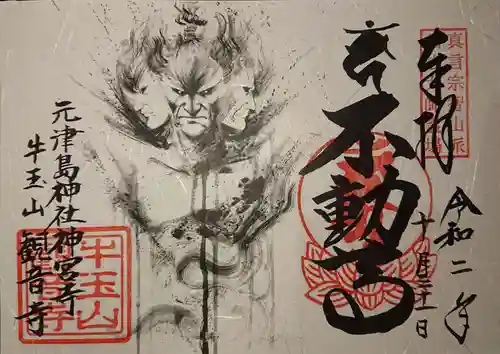 奉拝
真言宗智山派
令和二年
十月二十一日
不動尊
元津島神社神宮寺
牛玉山
観音寺
牛玉山